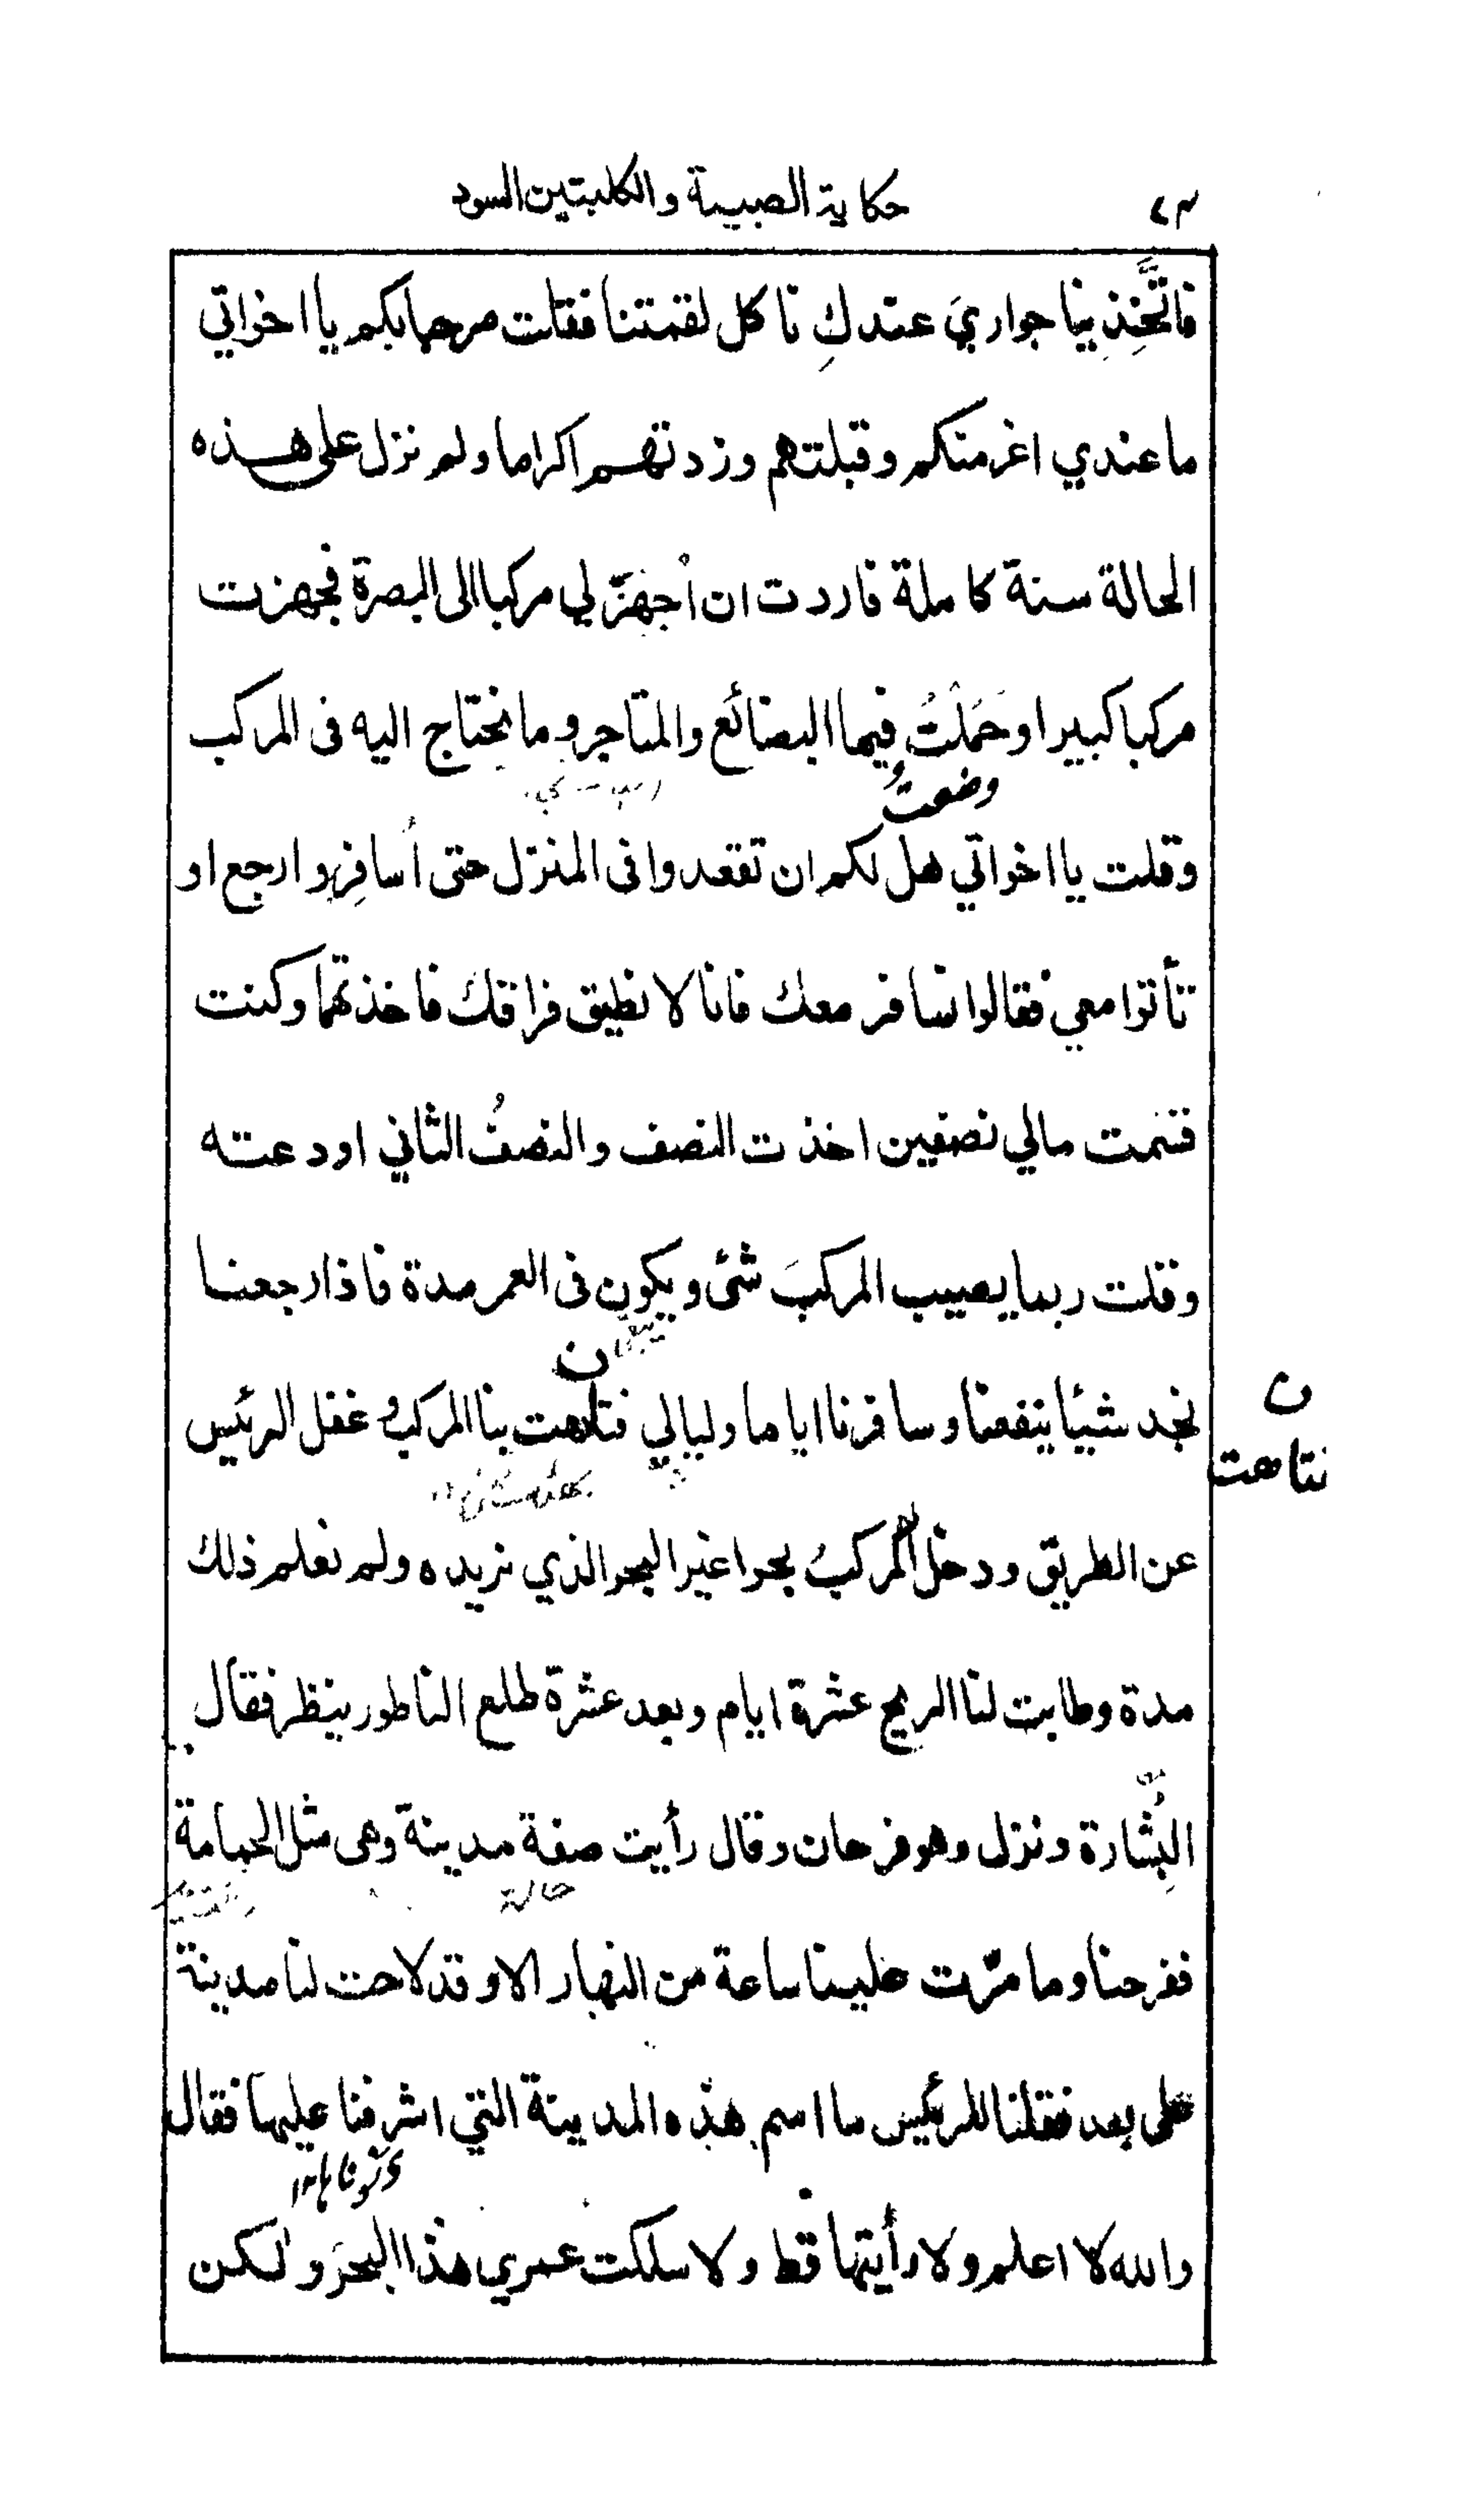 حكاية الصبية والكلبتين السود
فاتَّخِذِينا جواريَ عندكِ ناكل لقمتنا فقلت مرحبا بكم يا اخواتي
ما عندي اعز منكم وقبلتهم وزدتهم اكراما ولم نزل على هذه
الحالة سنة كاملة فاردت ان اُجهّز لي مركبا الى البصرة فجهزت
مركبا كبيرا وحَمَلْتُ فيها البضائع والمتاجر وما نحتاج اليه فى المركب
وضعتُ
وقلت يا اخواتي هل لكم ان تقعدوا فى المنزل حتى أسافِر وارجع او
تأتوا معي فقالوا نسافر معك فانا لا نطيق فراقك فاخذتهما وكنت
قسمت مالي نصفين اخذت النصف والنصفُ الثاني اودعته
وقلت ربما يصيب المركبَ شئ ويكون فى العمر مدة فاذا رجعنا
ن
نجد شيئا ينفعنا وسافرنا اياما وليالي فتاهت بنا المركب وغفل الرئيس
ن
فتاهت
عن الطريق ودخل المركبُ بحرا غير البحر الذي نريده ولم نعلم ذلك
مدة وطابت لنا الريح عشرة ايام وبعد عشرة طلع الناطور ينظر فقال
البُِشارة ونزل وهو فرحان وقال رأيت صفة مدينة وهى مثل الحمامة
حالة
ففرحنا وما مرّت علينا ساعة من النهار الا وقد لاحت لنا مدينة
على بعد فقلنا للرئيس ما اسم هذه المدينة التي اشرفنا عليها فقال
والله لا اعلم ولا رأيتها قط ولا سلكت عمري هذا البحرَ ولكن